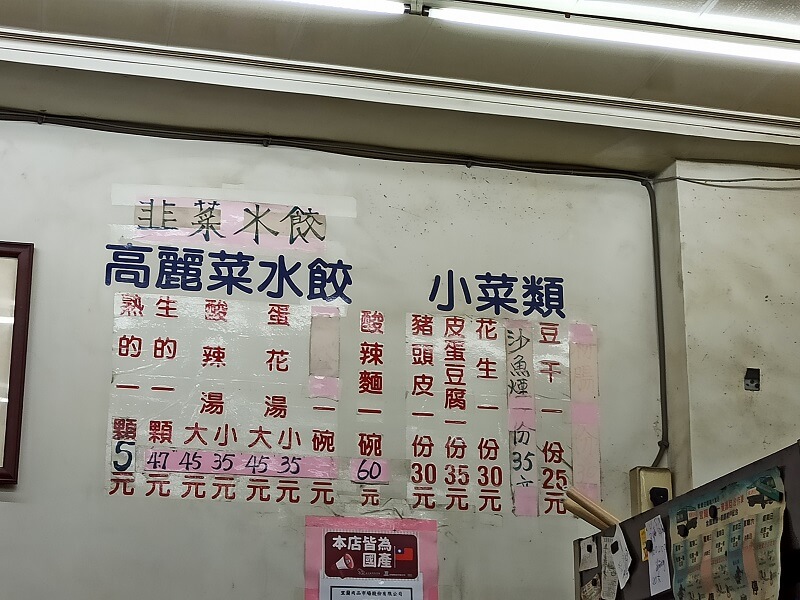 韭菜水餃
高麗菜水餃
小菜類
熟的一顆5元
生的一顆47元
酸辣湯大45元
小35元
蛋花湯大45元
小35元
一碗元
酸辣麵一碗60元
豬頭皮一份30元
皮蛋豆腐一份35元
花生一份30元
沙魚煙一份35元
豆干一份25元
本店皆為
國產